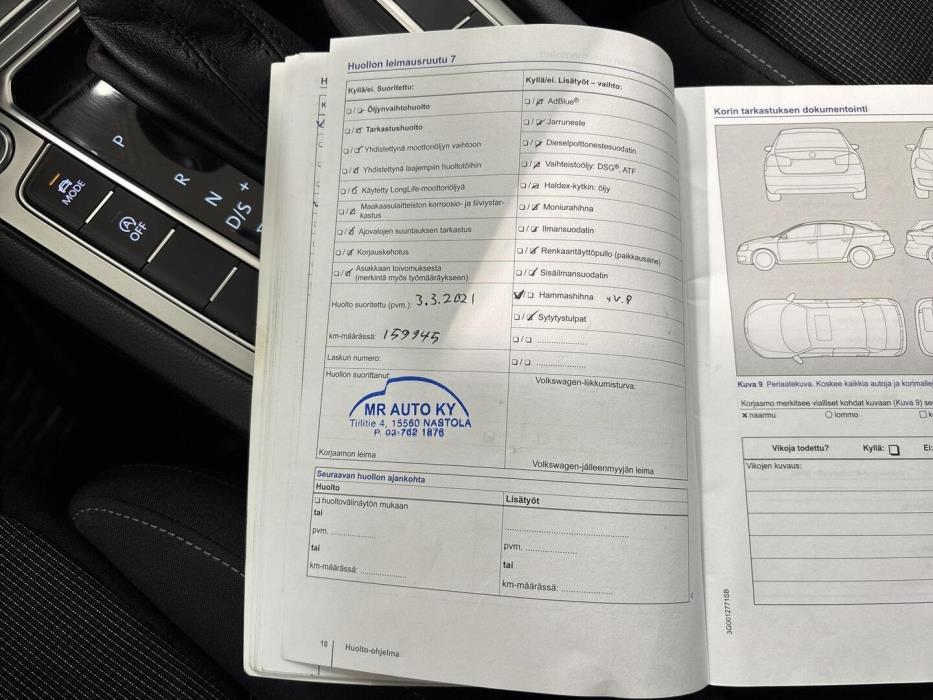 Huollon leimausruutu 7
Kyllä/ei. Suoritettu:
Öljynvaihtohuolto
Tarkastushuolto
Yhdistettynä moottoriöljyn vaihtoon
Yhdistettynä laajempiin huoltotöihin
Käytetty LongLife-moottoriöljyä
Maakaasulaitteiston korroosio- ja tiiviystar-
kastus
Ajovalojen suuntauksen tarkastus
Korjauskehotus
Asiakkaan toivomuksesta
(merkintä myös työmääräykseen)
Huolto suoritettu (pvm.): 3.3.2021
km-määrässä: 159945
Laskun numero:
Huollon suorittanut:
MR AUTO KY
Tiilitie 4, 15560 NASTOLA
P. 03-762 1876
Korjaamon leima
Kyllä/ei. Lisätyöt – vaihto:
AdBlue®
Jarruneste
Dieselpolttonestesuodatin
Vaihteistoöljy: DSG®, ATF
Haldex-kytkin: öljy
Moniurahihna
Ilmansuodatin
Renkaantäyttöpullo (paikkausaine)
Sisäilmansuodatin
Hammashihna
Sytytystulpat
Volkswagen-liikkumisturva:
Volkswagen-jälleenmyyjän leima
Seuraavan huollon ajankohta
Huolto
huoltovälinäytön mukaan
tai
pvm.
tai
km-määrässä:
Lisätyöt
pvm.
tai
km-määrässä:
18 Huolto-ohjelma
Korin tarkastuksen dokumentointi
Kuva 9 Periaatekuva. Koskee kaikkia autoja ja korimalle
Korjaamo merkitsee vialliset kohdat kuvaan (Kuva 9)
naarmu
lommo
Vikoja todettu? Kyllä: Ei:
Vikojen kuvaus:
3G0012771SB
P
R
N
D/S +
MODE
A
OFF